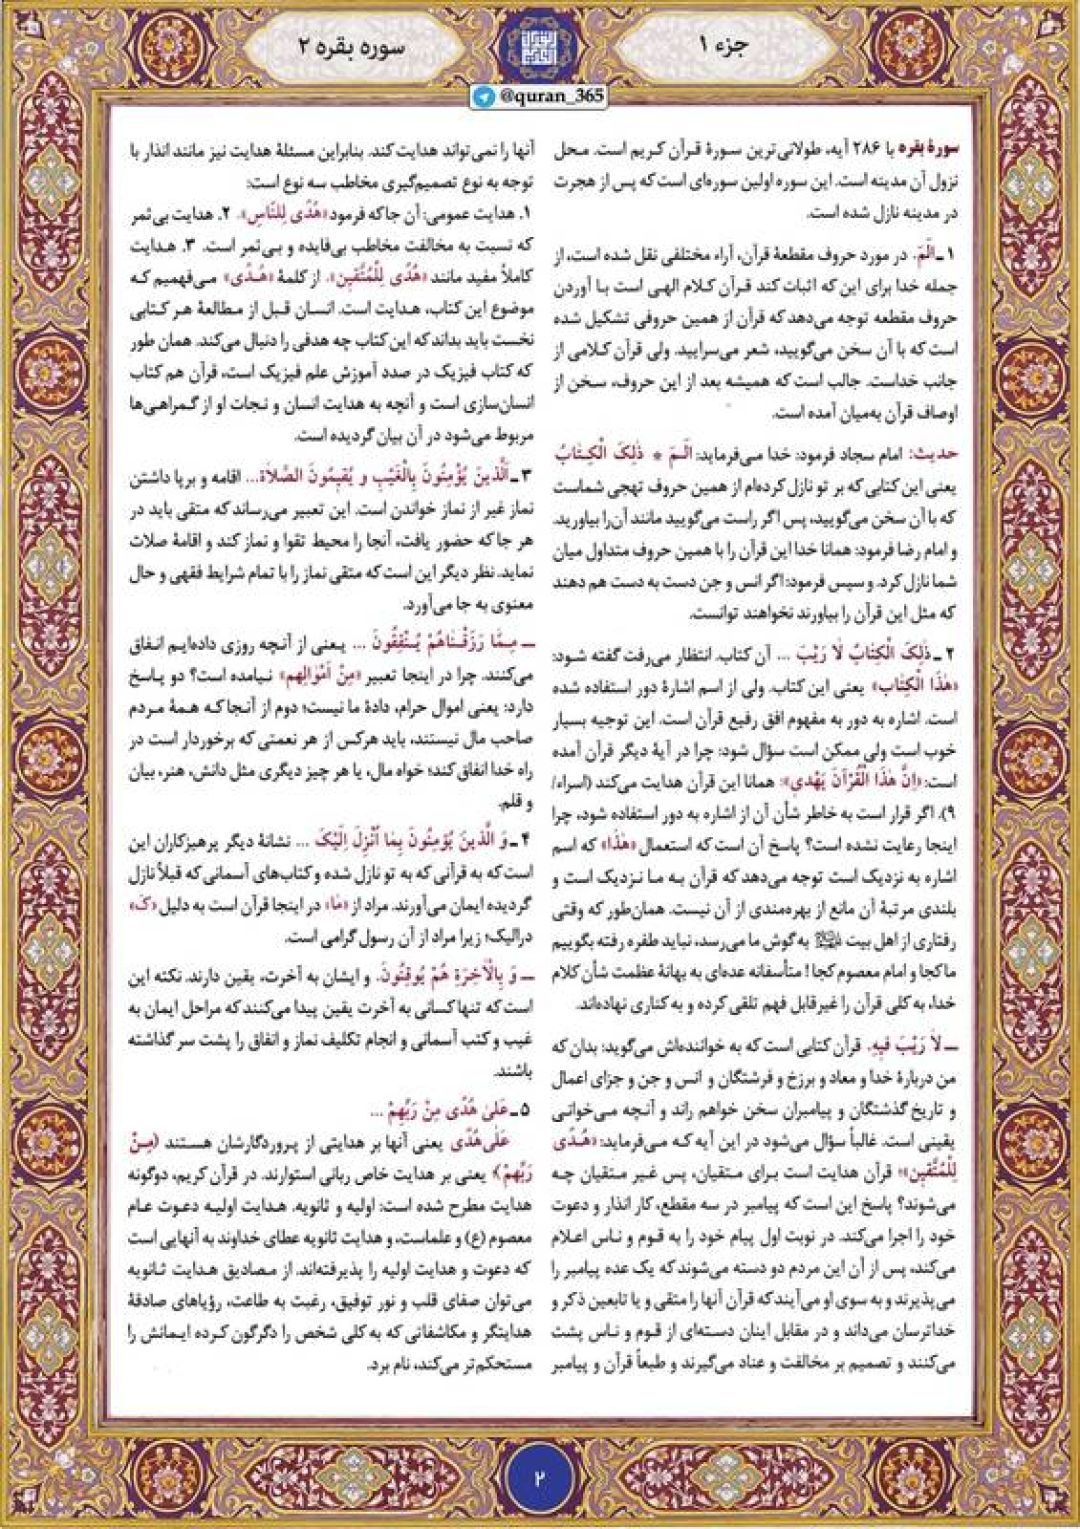 جزء ۱
سوره بقره ۲
@quran_365
سورهٔ بقره با ۲۸۶ آیه، طولانی‌ترین سورهٔ قرآن کریم است. محل
نزول آن مدینه است. این سوره اولین سوره‌ای است که پس از هجرت
در مدینه نازل شده است.
۱ـ الٓمٓ. در مورد حروف مقطعهٔ قرآن، آراء مختلفی نقل شده است، از
جمله خدا برای این که اثبات کند قرآن کلام الهی است با آوردن
حروف مقطعه توجه می‌دهد که قرآن از همین حروفی تشکیل شده
است که با آن سخن می‌گویید، شعر می‌سرایید. ولی قرآن کلامی از
جانب خداست. جالب است که همیشه بعد از این حروف، سخن از
اوصاف قرآن به‌میان آمده است.
حدیث: امام سجاد فرمود: خدا می‌فرماید: الٓمٓ * ذٰلِکَ الْکِتٰابُ
یعنی این کتابی که بر تو نازل کرده‌ام از همین حروف تهجی شماست
که با آن سخن می‌گویید، پس اگر راست می‌گویید مانند آن را بیاورید.
و امام رضا فرمود: همانا خدا این قرآن را با همین حروف متداول میان
شما نازل کرد. و سپس فرمود: اگر انس و جن دست به دست هم دهند
که مثل این قرآن را بیاورند نخواهند توانست.
۲ـ ذٰلِکَ الْکِتٰابُ لٰا رَیْبَ ... آن کتاب. انتظار می‌رفت گفته شود:
«هٰذَا الْکِتٰاب» یعنی این کتاب. ولی از اسم اشارهٔ دور استفاده شده
است. اشاره به دور به مفهوم افق رفیع قرآن است. این توجیه بسیار
خوب است ولی ممکن است سؤال شود: چرا در آیهٔ دیگر قرآن آمده
است: «اِنَّ هٰذَا الْقُرْآنَ یَهْدی»: همانا این قرآن هدایت می‌کند (اسراء/
۹). اگر قرار است به خاطر شأن آن از اشاره به دور استفاده شود، چرا
اینجا رعایت نشده است؟ پاسخ آن است که استعمال «هٰذٰا» که اسم
اشاره به نزدیک است توجه می‌دهد که قرآن به ما نزدیک است و
بلندی مرتبهٔ آن مانع از بهره‌مندی از آن نیست. همان‌طور که وقتی
رفتاری از اهل بیت به گوش ما می‌رسد، نباید طفره رفته بگوییم
ما کجا و امام معصوم کجا! متأسفانه عده‌ای به بهانهٔ عظمت شأن کلام
خدا، به کلی قرآن را غیرقابل فهم تلقی کرده و به کناری نهاده‌اند.
ـ لٰا رَیْبَ فیهِ. قرآن کتابی است که به خواننده‌اش می‌گوید: بدان که
من دربارهٔ خدا و معاد و برزخ و فرشتگان و انس و جن و جزای اعمال
و تاریخ گذشتگان و پیامبران سخن خواهم راند و آنچه می‌خوانی
یقینی است. غالباً سؤال می‌شود در این آیه که می‌فرماید: «هُدًی
لِلْمُتَّقین» قرآن هدایت است برای متقیان، پس غیر متقیان چه
می‌شوند؟ پاسخ این است که پیامبر در سه مقطع، کار انذار و دعوت
خود را اجرا می‌کند. در نوبت اول پیام خود را به قوم و ناس اعلام
می‌کند، پس از آن این مردم دو دسته می‌شوند که یک عده پیامبر را
می‌پذیرند و به سوی او می‌آیند که قرآن آنها را متقی و یا تابعین ذکر و
خداترسان می‌داند و در مقابل اینان دسته‌ای از قوم و ناس پشت
می‌کنند و تصمیم بر مخالفت و عناد می‌گیرند و طبعاً قرآن و پیامبر
آنها را نمی‌تواند هدایت کند. بنابراین مسئلهٔ هدایت نیز مانند انذار با
توجه به نوع تصمیم‌گیری مخاطب سه نوع است:
۱. هدایت عمومی: آن جا که فرمود «هُدًی لِلنّاسِ». ۲. هدایت بی‌ثمر
که نسبت به مخالفت مخاطب بی‌فایده و بی‌ثمر است. ۳. هدایت
کاملاً مفید مانند «هُدًی لِلْمُتَّقین». از کلمهٔ «هُدًی» می‌فهمیم که
موضوع این کتاب، هدایت است. انسان قبل از مطالعهٔ هر کتابی
نخست باید بداند که این کتاب چه هدفی را دنبال می‌کند. همان طور
که کتاب فیزیک در صدد آموزش علم فیزیک است، قرآن هم کتاب
انسان‌سازی است و آنچه به هدایت انسان و نجات او از گمراهی‌ها
مربوط می‌شود در آن بیان گردیده است.
۳ـ اَلَّذینَ یُؤْمِنُونَ بِالْغَیْبِ وَ یُقیمُونَ الصَّلٰاةَ... اقامه و برپا داشتن
نماز غیر از نماز خواندن است. این تعبیر می‌رساند که متقی باید در
هر جا که حضور یافت، آنجا را محیط تقوا و نماز کند و اقامهٔ صلات
نماید. نظر دیگر این است که متقی نماز را با تمام شرایط فقهی و حال
معنوی به جا می‌آورد.
ـ مِمّٰا رَزَقْنٰاهُمْ یُنْفِقُونَ ... یعنی از آنچه روزی داده‌ایم انفاق
می‌کنند. چرا در اینجا تعبیر «مِنْ اَمْوٰالِهِم» نیامده است؟ دو پاسخ
دارد: یعنی اموال حرام، دادهٔ ما نیست؛ دوم از آنجا که همهٔ مردم
صاحب مال نیستند، باید هرکس از هر نعمتی که برخوردار است در
راه خدا انفاق کند؛ خواه مال، یا هر چیز دیگری مثل دانش، هنر، بیان
و قلم.
۴ـ وَ الَّذینَ یُؤْمِنُونَ بِمٰا اُنْزِلَ اِلَیْکَ ... نشانهٔ دیگر پرهیزکاران این
است که به قرآنی که به تو نازل شده و کتاب‌های آسمانی که قبلاً نازل
گردیده ایمان می‌آورند. مراد از «مٰا» در اینجا قرآن است به دلیل «کَ»
در الیک؛ زیرا مراد از آن رسول گرامی است.
ـ وَ بِالْآخِرَةِ هُمْ یُوقِنُونَ. و ایشان به آخرت، یقین دارند. نکته این
است که تنها کسانی به آخرت یقین پیدا می‌کنند که مراحل ایمان به
غیب و کتب آسمانی و انجام تکلیف نماز و انفاق را پشت سر گذاشته
باشند.
۵ـ عَلیٰ هُدًی مِنْ رَبِّهِمْ ...
عَلیٰ هُدًی یعنی آنها بر هدایتی از پروردگارشان هستند (مِنْ
رَبِّهِمْ) یعنی بر هدایت خاص ربانی استوارند. در قرآن کریم، دوگونه
هدایت مطرح شده است: اولیه و ثانویه. هدایت اولیه دعوت عام
معصوم (ع) و علماست، و هدایت ثانویه عطای خداوند به آنهایی است
که دعوت و هدایت اولیه را پذیرفته‌اند. از مصادیق هدایت ثانویه
می‌توان صفای قلب و نور توفیق، رغبت به طاعت، رؤیاهای صادقهٔ
هدایتگر و مکاشفاتی که به کلی شخص را دگرگون کرده ایمانش را
مستحکم‌تر می‌کند، نام برد.
۲